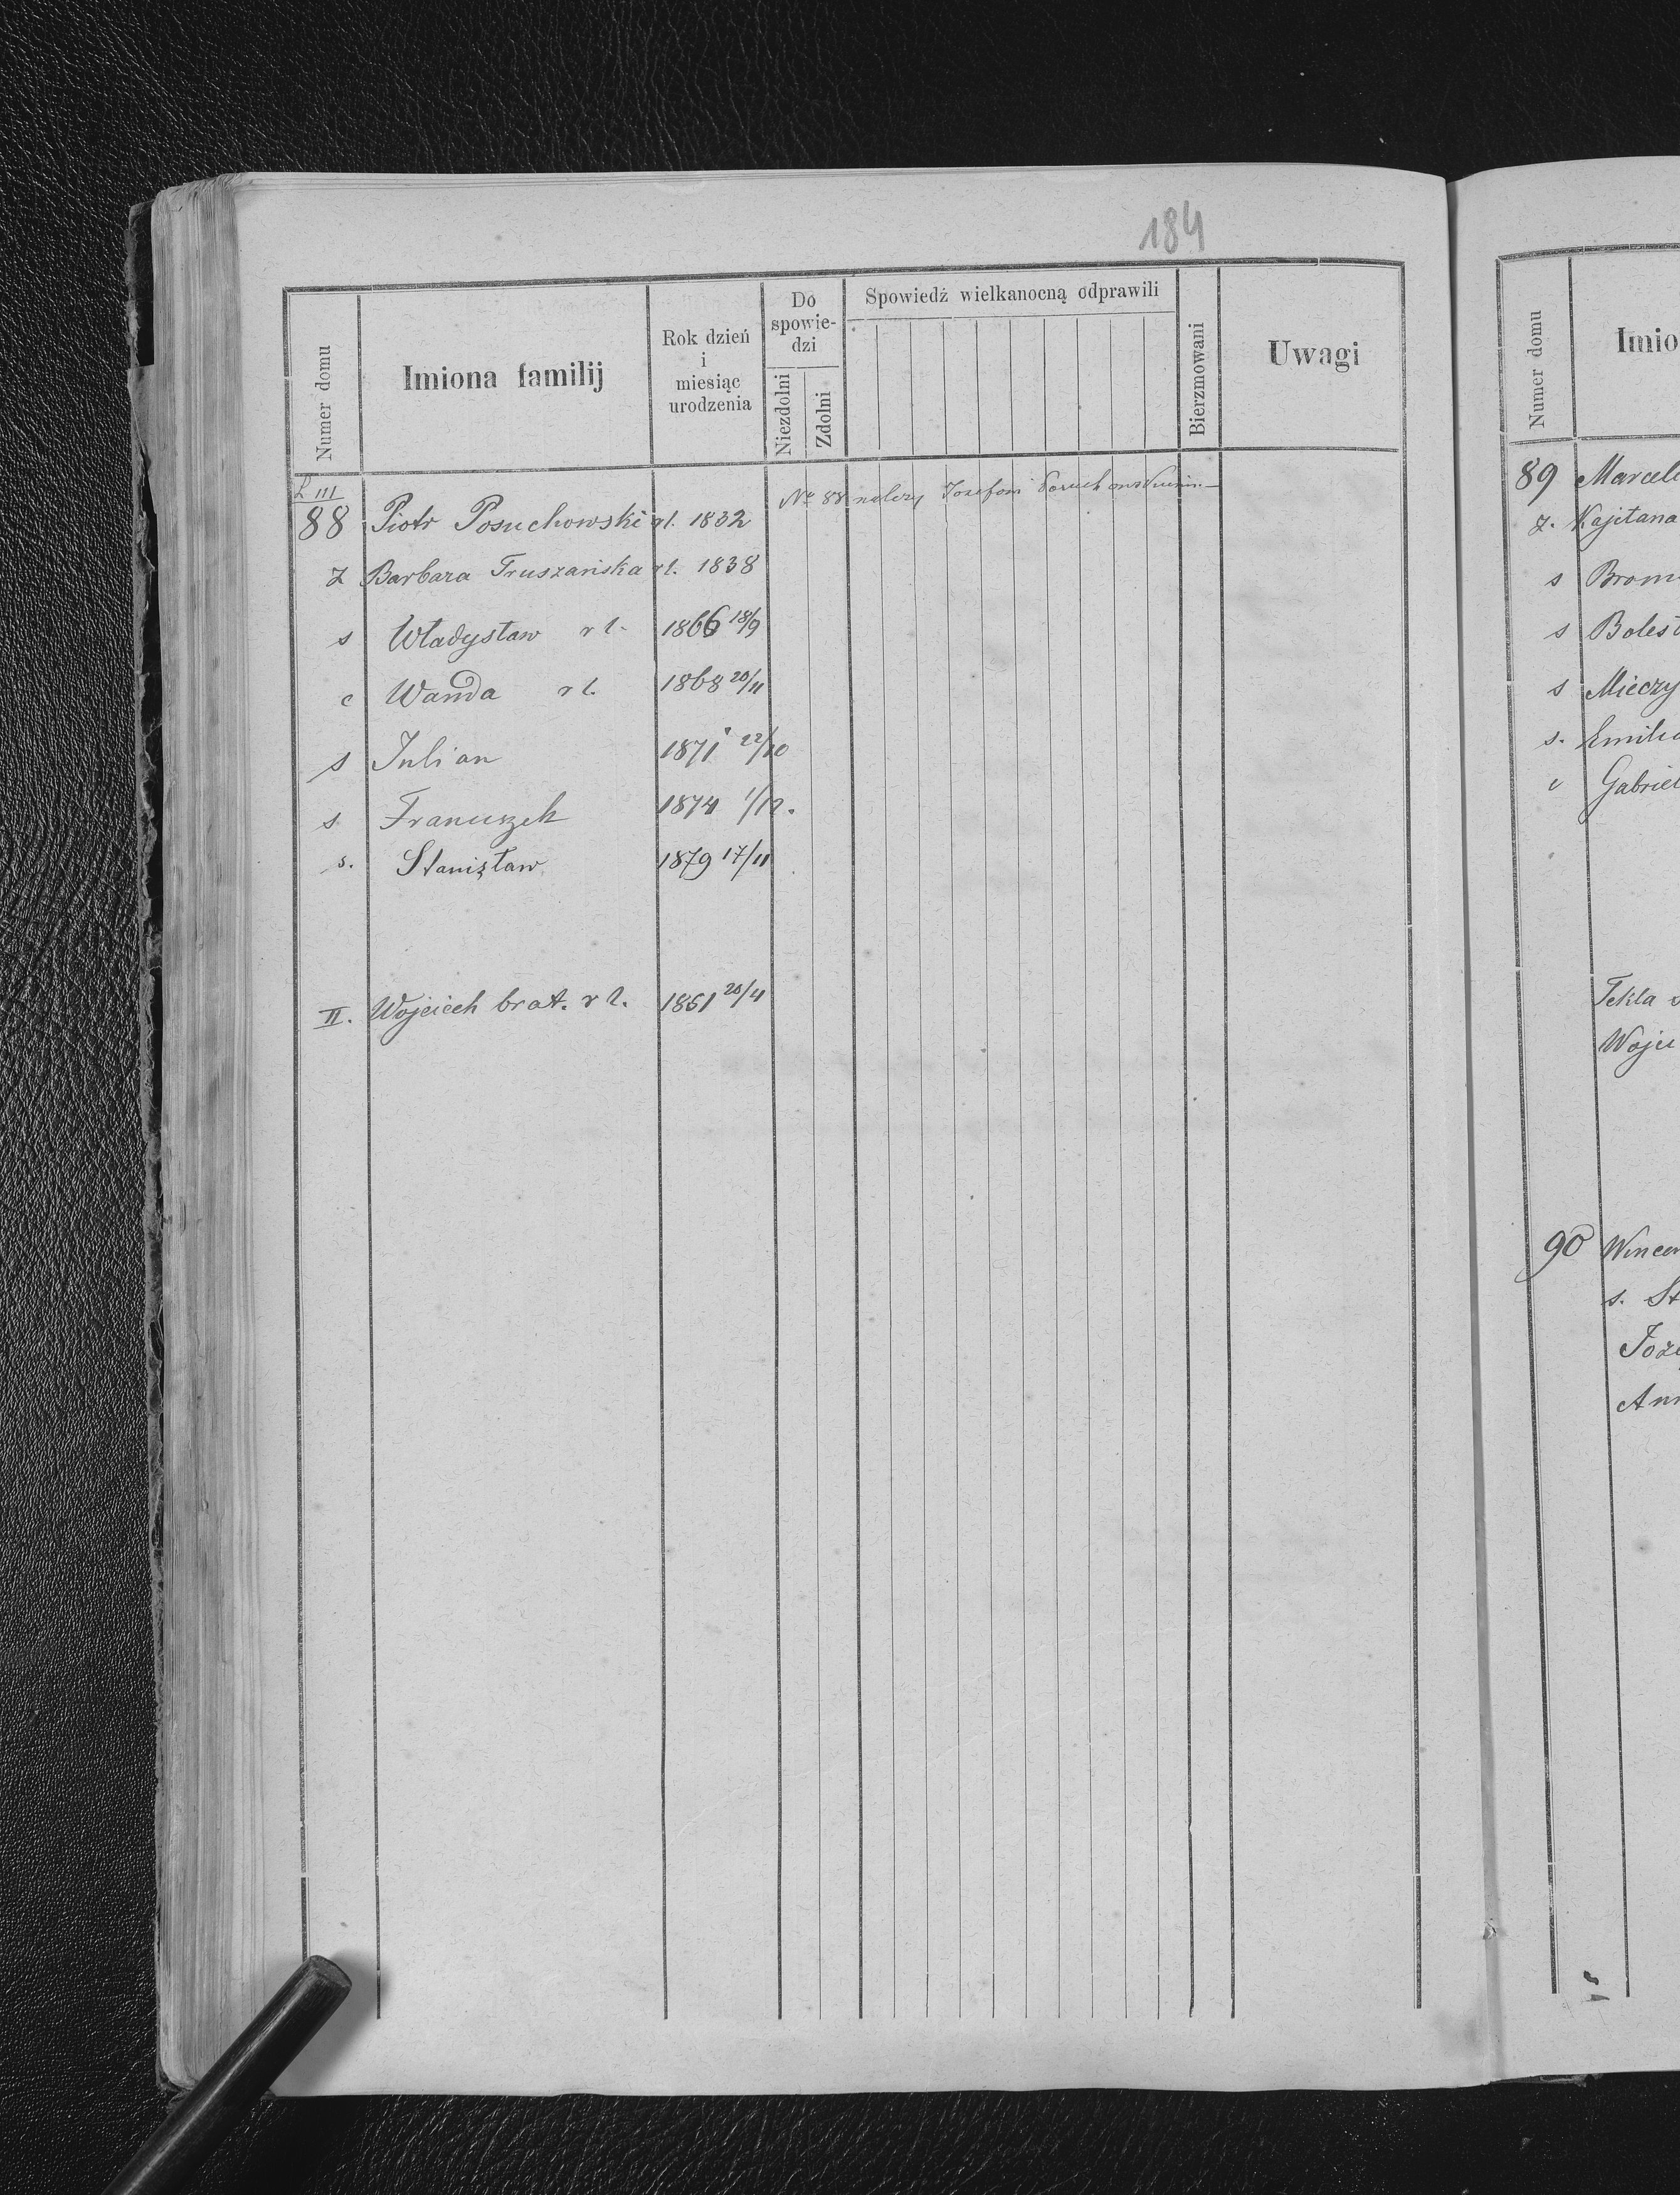 184
Numer domu
Imiona familij
Rok dzień
i
miesiąc
urodzenia
Do
spowie-
dzi
Niezdolni
Zdolni
Spowiedź wielkanocną odprawili
Bierzmowani
Uwagi
L III
88 Piotr Posuchowski rl. 1832
Nº 88 należy Josefowi
ż Barbara Truszańska rl. 1838
s Władysław rl. 1866 18/9
c Wanda rl. 1868 20/11
s Julian 1871 22/10
s Franciszek 1874 1/12.
s. Stanisław 1879 17/11
II. Wojciech brat. rl. 1861 20/4
Numer domu
Imio
89 Marcel
ż. Kajetana
s Bron
s Bolesł
s Mieczy
s. Emili
c Gabriel
Tekla
Wojci
90 Wincen
s. St
Józe
Ann